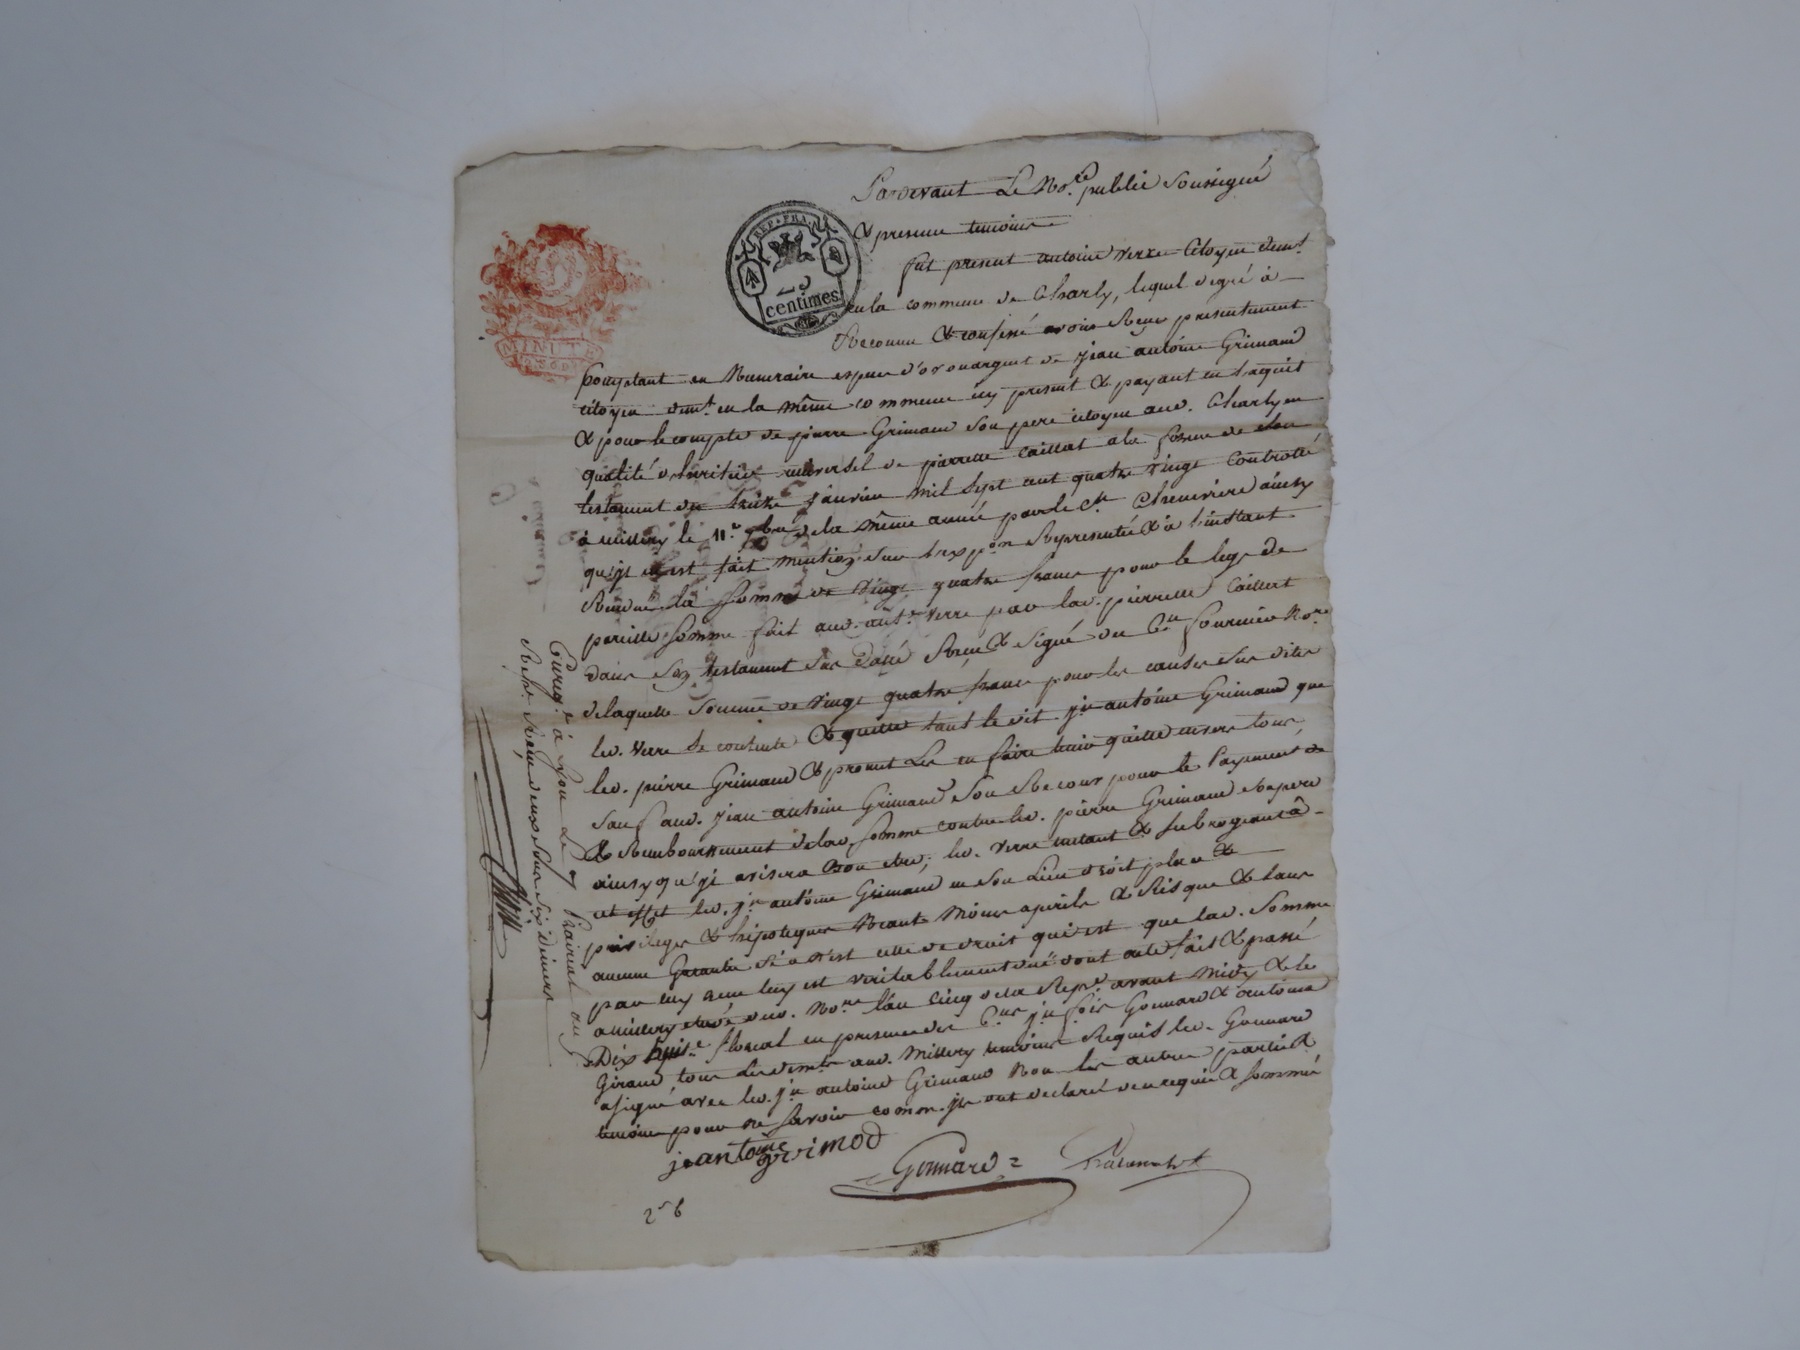 REP. FRA.
25
centimes
MINUTE
Pardevant Le No.re public Soussigné
& presens temoins
fut present antoine verre Citoyen dem.t
en la commune de Charly, lequel degré à
Reconnu & confessé avoir Reçu presentement
comptant en Numeraire espece d'or ou argent de jean antoine Grimaud
citoyen dem.t en la même commune icy present & payant en l'aquit
& pour le compte de pierre Grimaud son pere citoyen aud. Charly en
qualité d'heritier universel de pierrette Caillat a la forme de son
testament du treize janvier mil sept cent quatre vingt controllé
à millery le 11.e 9bre de la même année par le C.n Chenevière ainsy
qu'il en est fait mention sur l'exp.on Representée & à l'instant
Rendue la somme de vingt quatre francs pour le legs de
pareille somme fait aud. ant.e verre par lad. pierrette Caillat
dans son testament sus datté Reçu & signé du C.en fournier No.re
de laquelle somme de vingt quatre francs pour les causes sus dites
led. verre se contente & quitte tant le dit j.n antoine Grimaud que
led. pierre Grimaud & promet Les en faire tenir quitte envers tous,
sauf aud. jean antoine Grimaud son Recour pour le Payement de
& Remboursement de lad. somme contre led. pierre Grimaud so pere
ainsy qu'il avisera bon etre; led. verre mettant & subrogeant à
cet effet led. j.n antoine Grimaud en son Lieu droit place &
privileges & hipoteques Neant Moins a perils & Risque & sans
aucune Garantie si ce n'est celle de droit qui est que lad. somme
par luy Reçue luy est veritablement due dont acte fait & passé
a millery etude dud. No.re l'an cinq de la Rep.e avant midy & le
Dix huit.e floreal en presence des C.ens j.n f.ois Gonnard & antoine
Giraud tous deux dem.ts aud. Millery temoins Requis led. Gonnard
a signé avec led. j.n antoine Grimaud Non les autres parties &
temoins pour ne savoir comm. ils ont declaré de ce requis & sommé
jeantoine grimod
Gonnard
Enreg.é à Lyon Le 7 Prairial an 5
Reçu deux sous six deniers